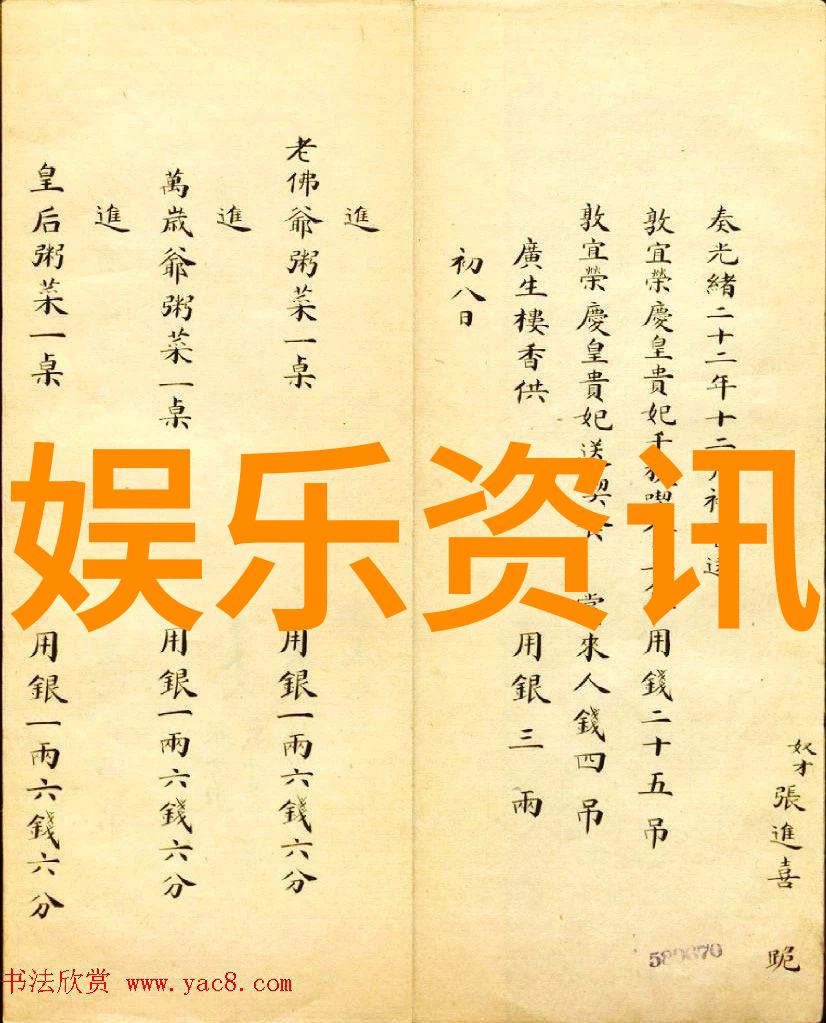 奴才張進喜 跪
奏光緒二十二年十二月初 送
敦宜榮慶皇貴妃千 用錢二十五吊
敦宜榮慶皇貴妃送喫食 賞來人錢四吊
廣生樓香供 用銀三兩
初八日
進
老佛爺粥菜一桌 用銀一兩六錢六分
進
萬歲爺粥菜一桌 用銀一兩六錢六分
進
皇后粥菜一桌 用銀一兩六錢六分
娱乐资讯
书法欣赏 www.yac8.com